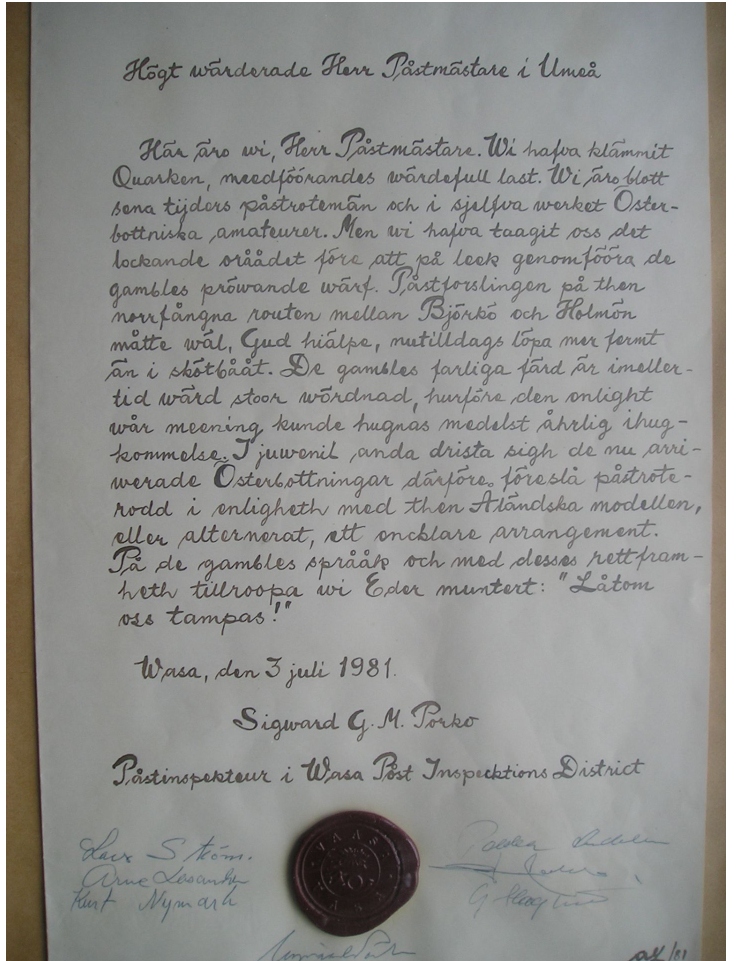 Högt wärderade Herr Påstmästare i Umeå
Här äro wi, Herr Påstmästare. Wi hafva klämmit
Quarken, meedföörandes wärdefull last. Wi äro blott
sena tijders påstrotemän och i sjelfva werket Öster-
bottniska amateurer. Men wi hafva taagit oss det
lockande oråådet före att på leek genomfööra de
gambles pröwande wärf. Påstforslingen på then
norrfångna routen mellan Björkö och Holmön
måtte wäl, Gud hiälpe, nutilldags löpa mer fermt
än i skötbååt. De gambles farliga färd är imeller-
tid wärd stoor wördnad, hurföre den enlight
wår meening kunde hugnas medelst åhrlig ihug-
kommelse. I juwenil anda drista sigh de nu arri-
werade Österbottningar därföre föreslå påstrote-
rodd i enligheth med then Åländska modellen,
eller alternerat, ett encklare arrangement.
På de gambles språåk och med desses rettfram-
heth tillroopa wi Eder muntert: "Låtom
oss tampas!"
Wasa, den 3 juli 1981.
Sigward G. M. Porko
Påstinspekteur i Wasa Påst Inspecktions District
VAASA
VASA
Ström.
Arne
Kurt Nymark
/81